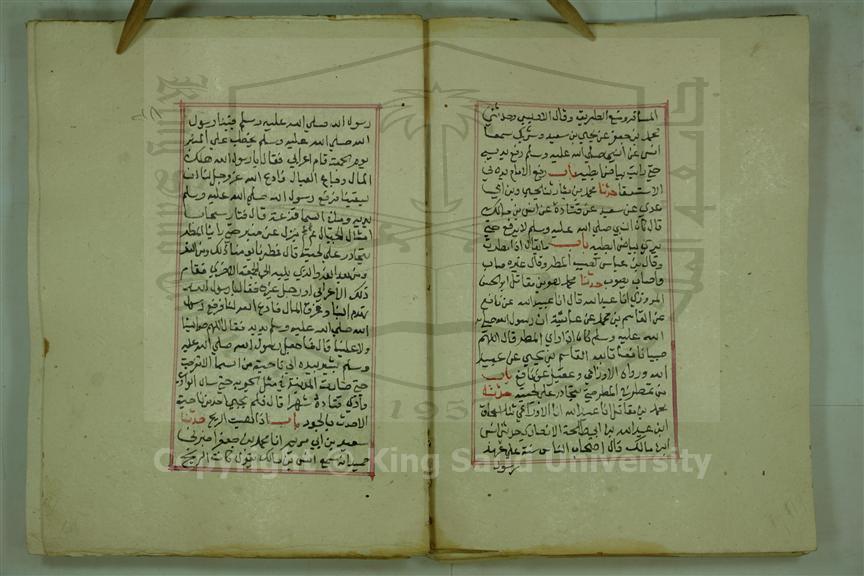 المسافر ومنع الطريق وقال الاويسي وحدثني
محمد بن جعفر عن يحيى بن سعيد وشريك سمعا
انس عن النبي صلى الله عليه وسلم رفع يديه
حتى رايت بياض ابطيه باب رفع الامام يده في
الاستسقا حدثنا محمد بن بشار ثنا يحيى وابن ابي
عدي عن سعيد عن قتادة عن انس بن مالك
قال كان النبي صلى الله عليه وسلم لا يرفع
حتى يرى بياض ابطيه باب ما يقال اذا مطرت
وقال ابن عباس كصيب المطر وقال غيره صاب
واصاب يصوب حدثنا محمد هو بن مقاتل ابو الحسن
المروزي انا عبد الله قال انا عبيد الله عن نافع
عن القاسم بن محمد عن عائشة ان رسول الله صلى
الله عليه وسلم كان اذا راى المطر قال اللهم
صيبا نافعا تابعه القاسم بن يحيى عن عبيد
الله ورواه الاوزاعي وعقيل عن نافع باب
من تمطر في المطر حتى يتحادر على لحيته حدثنا
محمد بن مقاتل انا عبد الله انا الاوزاعي ثنا اسحاق
ابن عبد الله بن ابي طلحة الانصاري حدثني انس
ابن مالك قال اصابت الناس سنة على عهد
رسول
رسول الله صلى الله عليه وسلم فبينا رسول
الله صلى الله عليه وسلم يخطب على المنبر
يوم الجمعة قام اعرابي فقال يا رسول الله هلك
المال وجاع العيال فادع الله عز وجل لنا ان
يسقينا فرفع رسول الله صلى الله عليه وسلم
يديه وما في السما قزعة قال فثار سحاب
امثال الجبال ثم لم ينزل عن منبره حتى راينا المطر
يتحادر على لحيته قال فمطرنا يومنا ذلك ومن الغد
ومن بعد الغد والذي يليه الى الجمعة الاخرى فقام
ذلك الاعرابي او رجل غيره فقال يا رسول الله
تهدم البنا وغرق المال فادع الله لنا فرفع رسول
الله صلى الله عليه وسلم يديه فقال اللهم حوالينا
ولا علينا قال فما جعل رسول الله صلى الله عليه
وسلم يشير بيده الى ناحية من السما الا تفرجت
حتى صارت المدينة في مثل الجوبة حتى سال الوادي
وادي قناة شهرا قال فلم يجي احد من ناحية
الا حدث بالجود باب اذا هبت الريح حدثنا
سعيد بن ابي مريم انا محمد بن جعفر اخبرني
حميد انه سمع انس بن مالك يقول كانت الريح
Copyright © King Saud University
1957